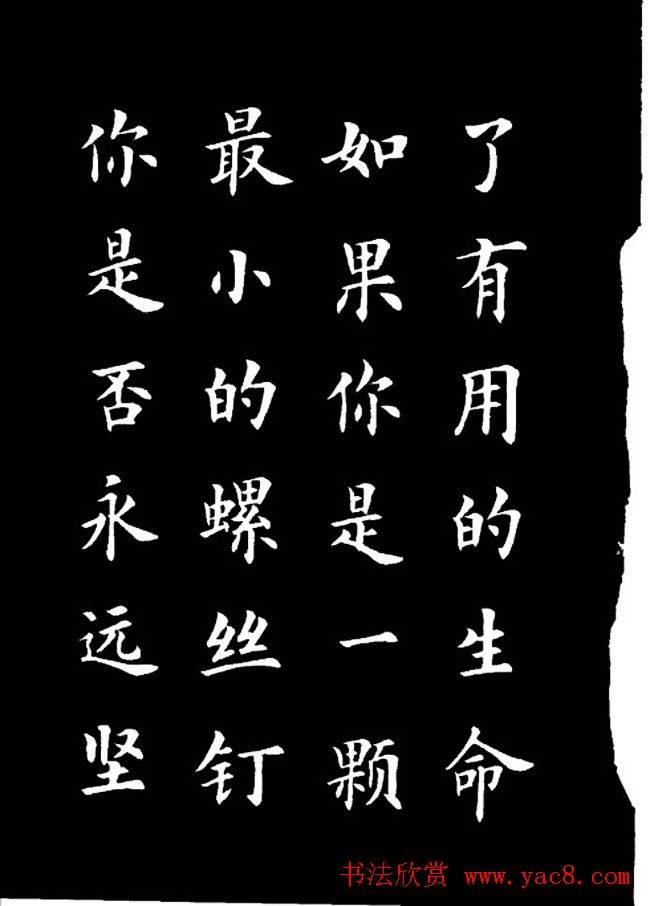 了有用的生命
如果你是一颗
最小的螺丝钉
你是否永远坚
书法欣赏 www.yac8.com